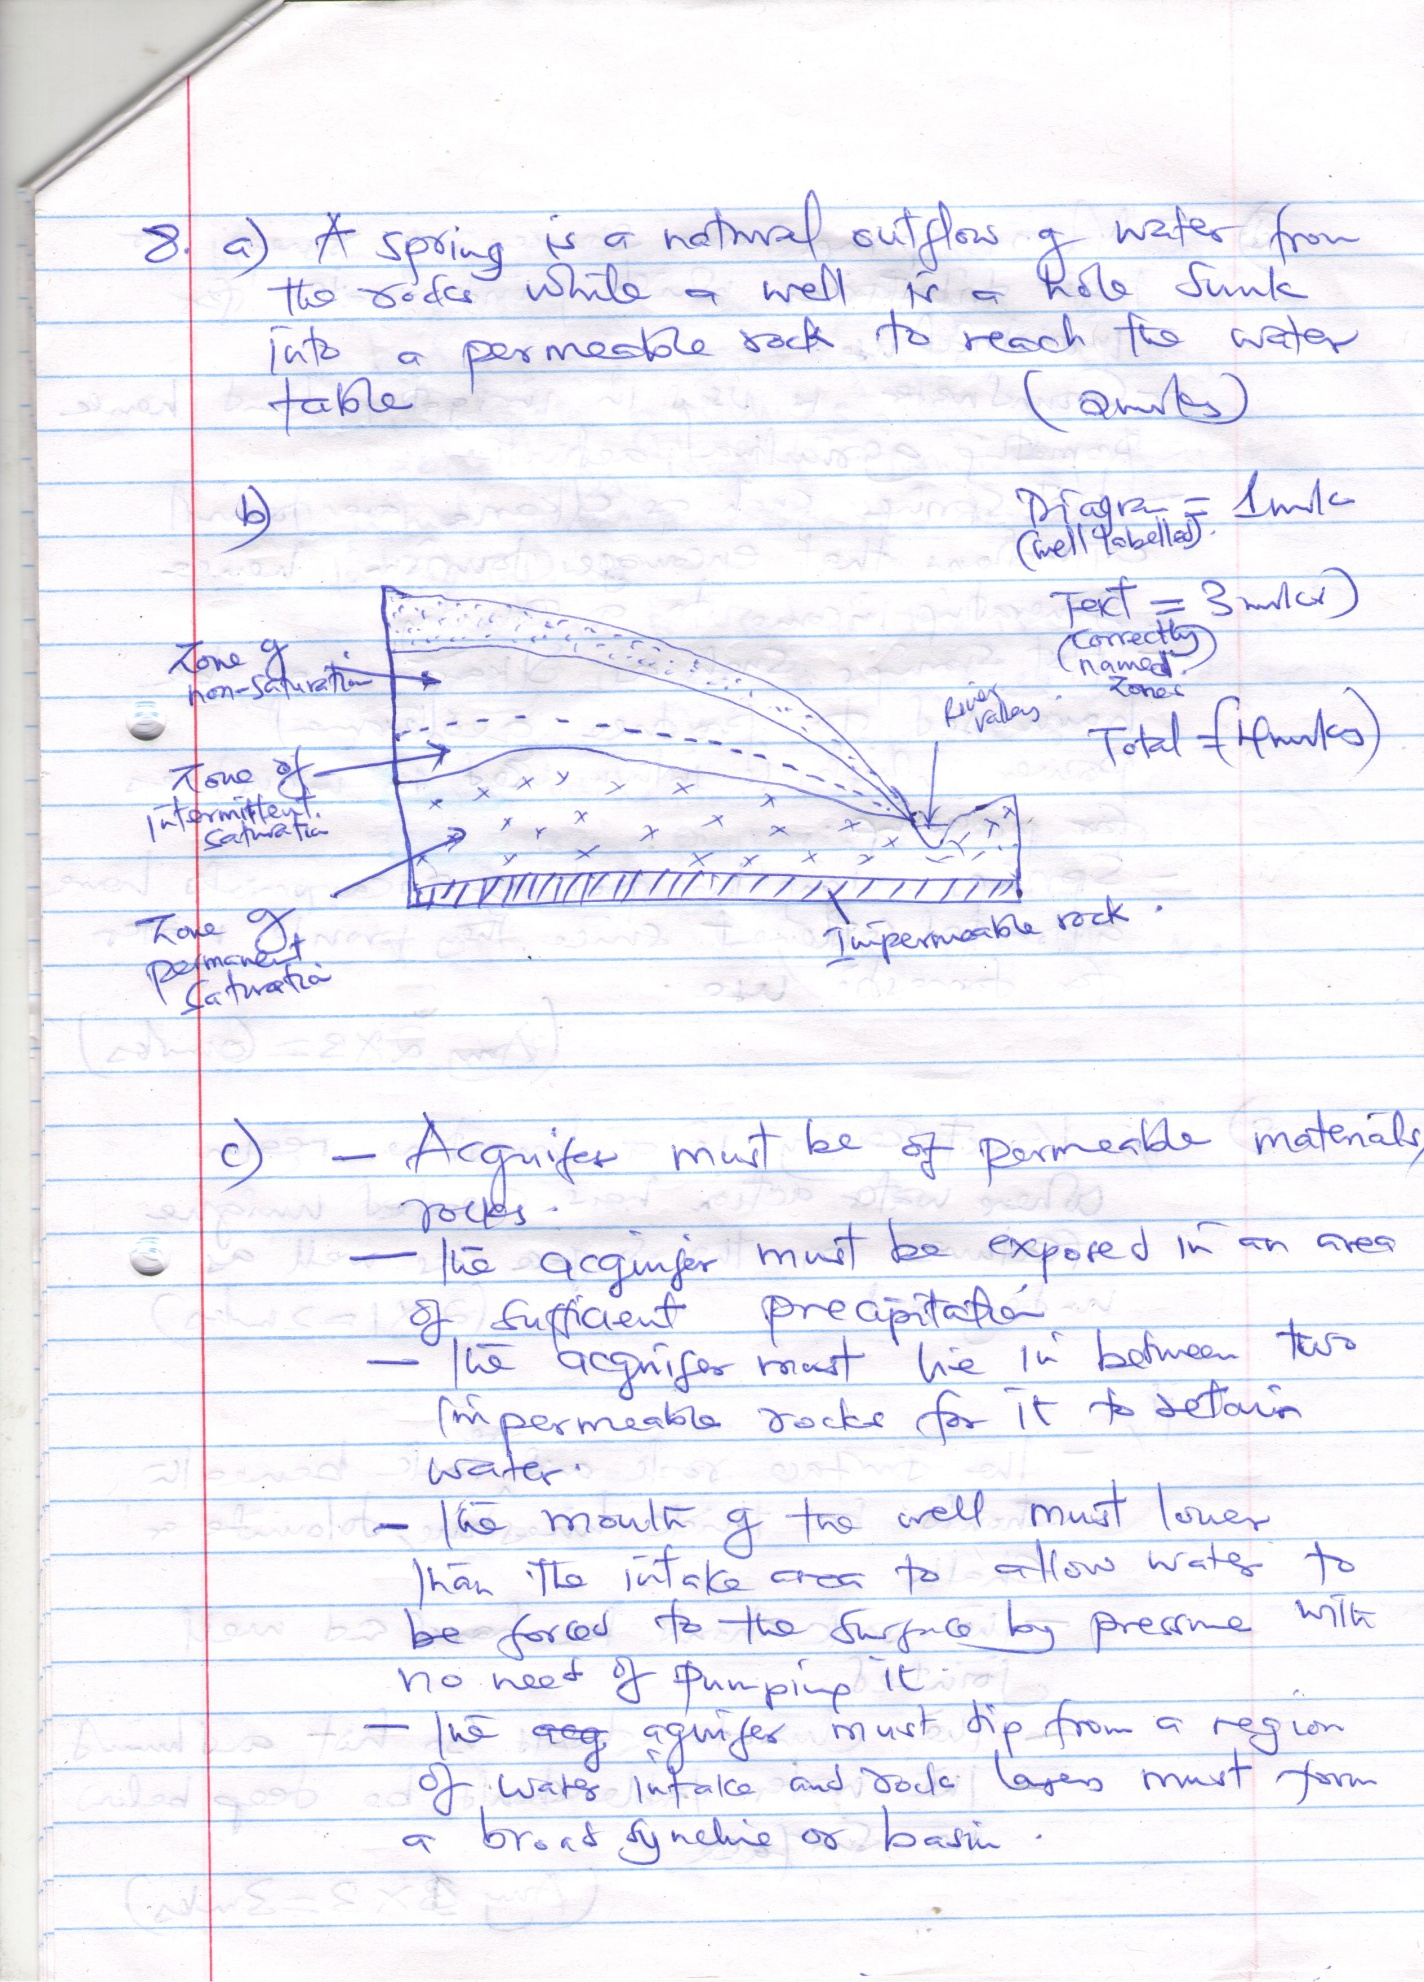 8. a) A spring is a natural outflow of water from
the rocks while a well is a hole sunk
into a permeable rock to reach the water
table (2mrks)
b) Diagra = 1mrk
(well labelled).
Text = 3 mrks)
(correctly
named
zones
Total = (4mrks)
Zone of
non-saturation
River
valley.
Zone of
intermittent.
saturation
Zone of
permanent
saturation
Impermeable rock.
c) - Acquifer must be of permeable materials,
rocks.
- The acquifer must be exposed in an area
of sufficient precipitation
- The acquifer must lie in between two
impermeable rocks for it to retain
water.
- The mouth of the well must lower
than the intake area to allow water to
be forced to the surface by pressure with
no need of pumping it
- The acq aquifer must dip from a region
of water intake and rock layers must form
a broad syncline or basin.